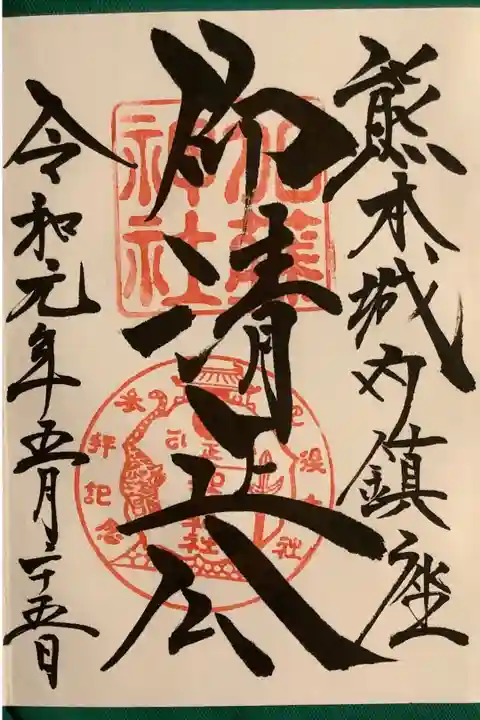 熊本城内鎮座
加藤神社
即清正公
令和元年五月二十五日
参拝記念